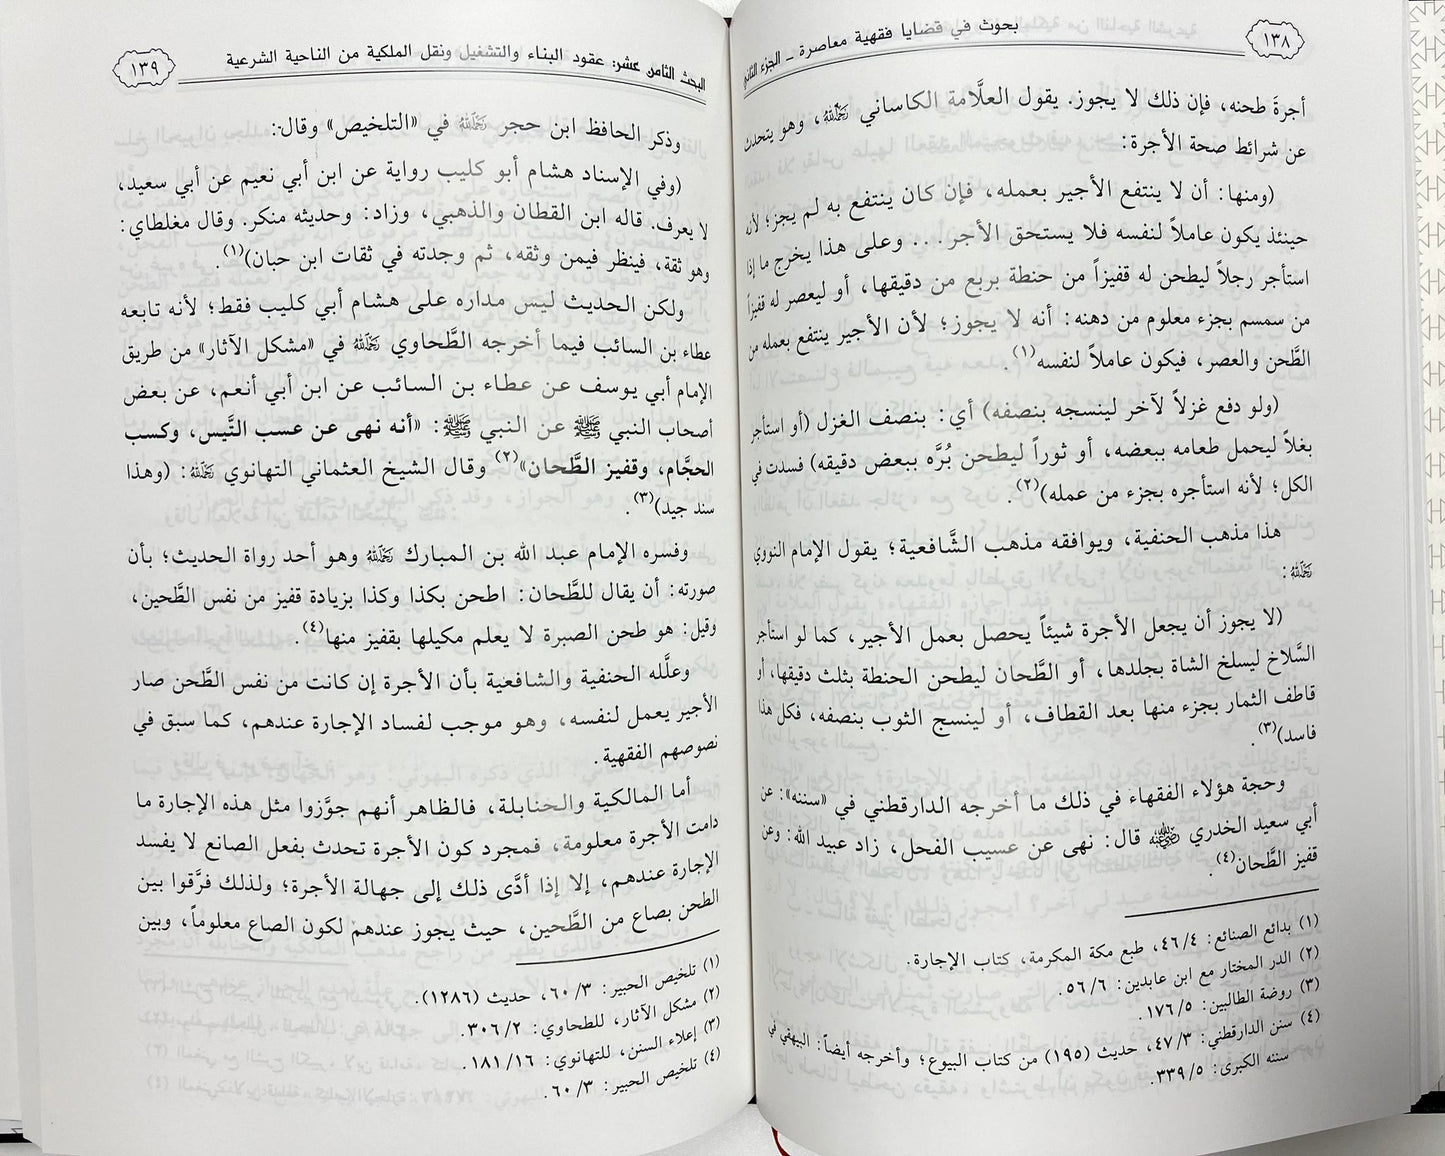 ١٣٨
بحوث في قضايا فقهية معاصرة ـ الجزء الثاني
أجرةَ طحنه، فإن ذلك لا يجوز. يقول العلَّامة الكاساني رحمه الله، وهو يتحدث
عن شرائط صحة الأجرة:
(ومنها: أن لا ينتفع الأجير بعمله، فإن كان ينتفع به لم يجز؛ لأنه
حينئذ يكون عاملاً لنفسه فلا يستحق الأجر... وعلى هذا يخرج ما إذا
استأجر رجلاً ليطحن له قفيزاً من حنطة بربع من دقيقها، أو ليعصر له قفيزاً
من سمسم بجزء معلوم من دهنه: أنه لا يجوز؛ لأن الأجير ينتفع بعمله من
الطَّحن والعصر، فيكون عاملاً لنفسه(١).
(ولو دفع غزلاً لآخر لينسجه بنصفه) أي: بنصف الغزل (أو استأجر
بغلاً ليحمل طعامه ببعضه، أو ثوراً ليطحن بُرَّه ببعض دقيقه) فسدت في
الكل؛ لأنه استأجره بجزء من عمله)(٢).
هذا مذهب الحنفية، ويوافقه مذهب الشَّافعية؛ يقول الإمام النووي
رحمه الله:
(لا يجوز أن يجعل الأجرة شيئاً يحصل بعمل الأجير، كما لو استأجر
السَّلاخ ليسلخ الشاة بجلدها، أو الطَّحان ليطحن الحنطة بثلث دقيقها، أو
قاطف الثمار بجزء منها بعد القطاف، أو لينسج الثوب بنصفه، فكل هذا
فاسد)(٣).
وحجة هؤلاء الفقهاء في ذلك ما أخرجه الدارقطني في «سننه»: عن
أبي سعيد الخدري رضي الله عنه قال: نهى عن عسيب الفحل، زاد عبيد الله: وعن
قفيز الطَّحان(٤).
(١) بدائع الصنائع: ٤٦/٤، طبع مكة المكرمة، كتاب الإجارة.
(٢) الدر المختار مع ابن عابدين: ٥٦/٦.
(٣) روضة الطالبين: ١٧٦/٥.
(٤) سنن الدارقطني: ٤٧/٣، حديث (١٩٥) من كتاب البيوع؛ وأخرجه أيضاً: البيهقي في
سننه الكبرى: ٣٣٩/٥.
البحث الثامن عشر: عقود البناء والتشغيل ونقل الملكية من الناحية الشرعية
١٣٩
وذكر الحافظ ابن حجر رحمه الله في «التلخيص» وقال:
(وفي الإسناد هشام أبو كليب رواية عن ابن أبي نعيم عن أبي سعيد،
لا يعرف. قاله ابن القطان والذهبي، وزاد: وحديثه منكر. وقال مغلطاي:
وهو ثقة، فينظر فيمن وثقه، ثم وجدته في ثقات ابن حبان)(١).
ولكن الحديث ليس مداره على هشام أبي كليب فقط؛ لأنه تابعه
عطاء بن السائب فيما أخرجه الطَّحاوي رحمه الله في «مشكل الآثار» من طريق
الإمام أبي يوسف عن عطاء بن السائب عن ابن أبي أنعم، عن بعض
أصحاب النبي ﷺ عن النبي ﷺ: «أنه نهى عن عسب التَّيس، وكسب
الحجَّام، وقفيز الطَّحان»(٢) وقال الشيخ العثماني التهانوي رحمه الله: (وهذا
سند جيد)(٣).
وفسره الإمام عبد الله بن المبارك رحمه الله وهو أحد رواة الحديث؛ بأن
صورته: أن يقال للطَّحان: اطحن بكذا وكذا بزيادة قفيز من نفس الطَّحين،
وقيل: هو طحن الصبرة لا يعلم مكيلها بقفيز منها(٤).
وعلَّله الحنفية والشافعية بأن الأجرة إن كانت من نفس الطَّحن صار
الأجير يعمل لنفسه، وهو موجب لفساد الإجارة عندهم، كما سبق في
نصوصهم الفقهية.
أما المالكية والحنابلة، فالظاهر أنهم جوَّزوا مثل هذه الإجارة ما
دامت الأجرة معلومة، فمجرد كون الأجرة تحدث بفعل الصانع لا يفسد
الإجارة عندهم، إلا إذا أدَّى ذلك إلى جهالة الأجرة؛ ولذلك فرَّقوا بين
الطحن بصاع من الطَّحين، حيث يجوز عندهم لكون الصاع معلوماً، وبين
(١) تلخيص الحبير: ٦٠/٣، حديث (١٢٨٦).
(٢) مشكل الآثار، للطحاوي: ٣٠٦/٢.
(٣) إعلاء السنن، للتهانوي: ١٨١/١٦.
(٤) تلخيص الحبير: ٦٠/٣.